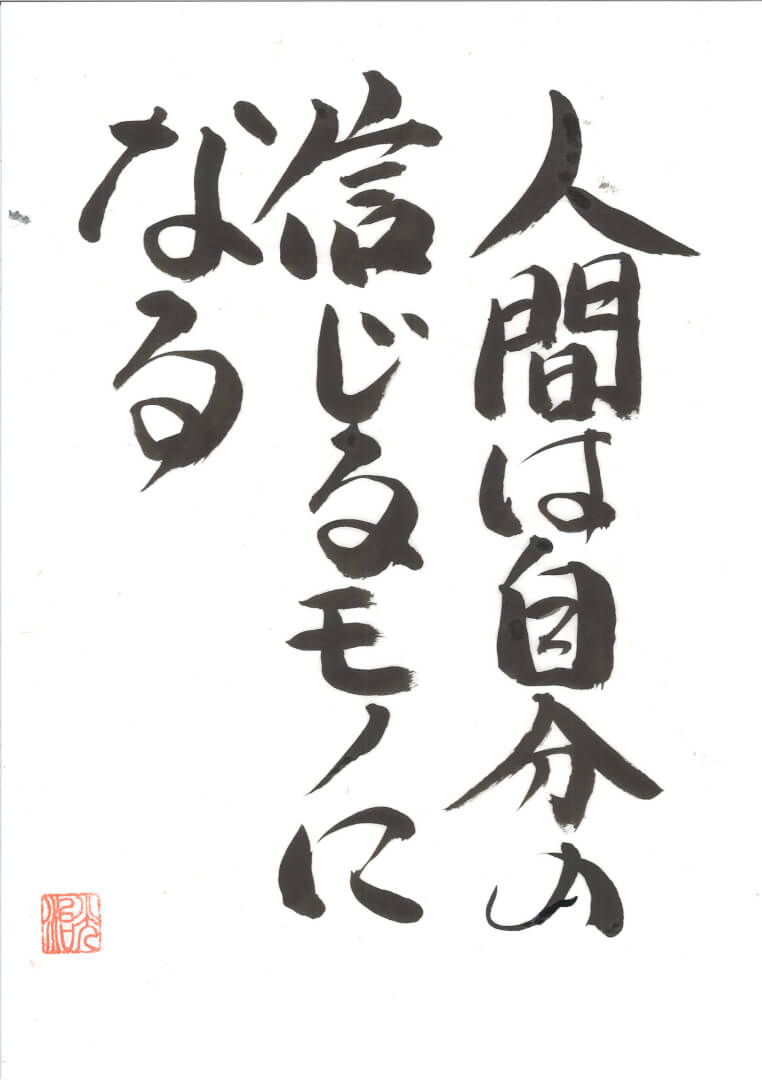 人間は自分の
信じるモノに
なる